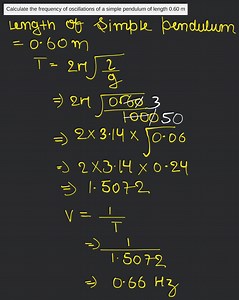 Calculate the frequency of oscillations of a simple pendulum of length 0.60 m.
Length of simple pendulum
= 0.60 m
T = 2π√l/g
⇒ 2π √0.60 3
1000 50
⇒ 2×3.14×√0.06
⇒ 2×3.14×0.24
⇒ 1.5072
ν = 1/T
⇒ 1/1.5072
⇒ 0.66 Hz